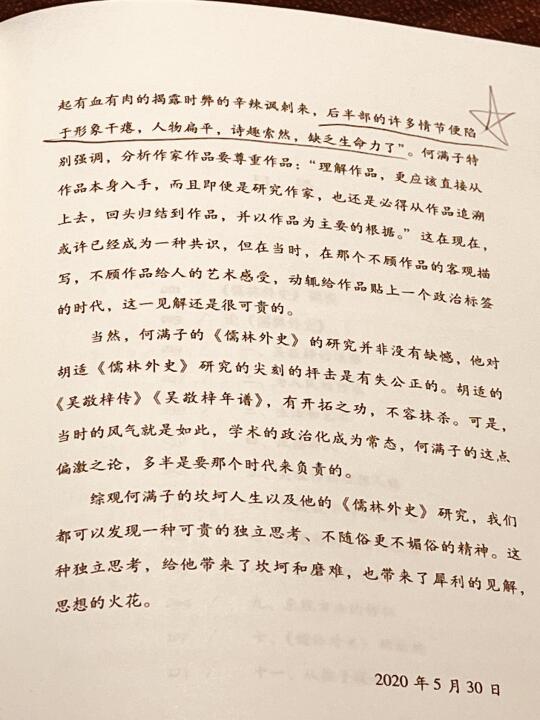 起有血有肉的揭露时弊的辛辣讽刺来，后半部的许多情节便陷
于形象干瘪，人物扁平，诗趣索然，缺乏生命力了”。何满子特
别强调，分析作家作品要尊重作品：“理解作品，更应该直接从
作品本身入手，而且即便是研究作家，也还是必得从作品追溯
上去，回头归结到作品，并以作品为主要的根据。”这在现在，
或许已经成为一种共识，但在当时，在那个不顾作品的客观描
写，不顾作品给人的艺术感受，动辄给作品贴上一个政治标签
的时代，这一见解还是很可贵的。
当然，何满子的《儒林外史》的研究并非没有缺憾，他对
胡适《儒林外史》研究的尖刻的抨击是有失公正的。胡适的
《吴敬梓传》《吴敬梓年谱》，有开拓之功，不容抹杀。可是，
当时的风气就是如此，学术的政治化成为常态，何满子的这点
偏激之论，多半是要那个时代来负责的。
综观何满子的坎坷人生以及他的《儒林外史》研究，我们
都可以发现一种可贵的独立思考、不随俗更不媚俗的精神。这
种独立思考，给他带来了坎坷和磨难，也带来了犀利的见解，
思想的火花。
2020 年 5 月 30 日